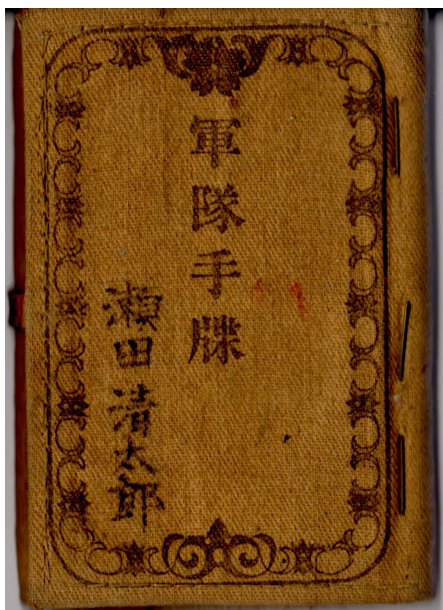 軍隊手牒
瀬田清太郎